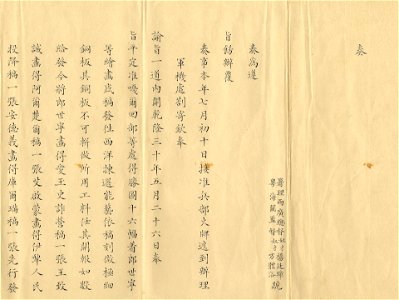 奏
署理兩廣總督奴才楊廷璋跪
粵海關監督奴才方體浴
奏為遵
旨飭辦覆
奏事本年七月初十日接准兵部火牌遞到辦理
軍機處劄寄欽奉
諭旨一道內開乾隆三十年五月二十六日奉
旨平定準噶爾回部等處得勝圖十六幅著郎世寧
等繪畫底稿發往西洋揀選能藝依稿刻做極細
銅板其銅板不可輕做所用工料任其開報如數
給發今將郎世寧畫得愛玉史詐營稿一張王致
誠畫得阿爾楚爾稿一張艾啟蒙畫得伊犂人民
投降稿一張安德義畫得庫爾璊稿一張先行發